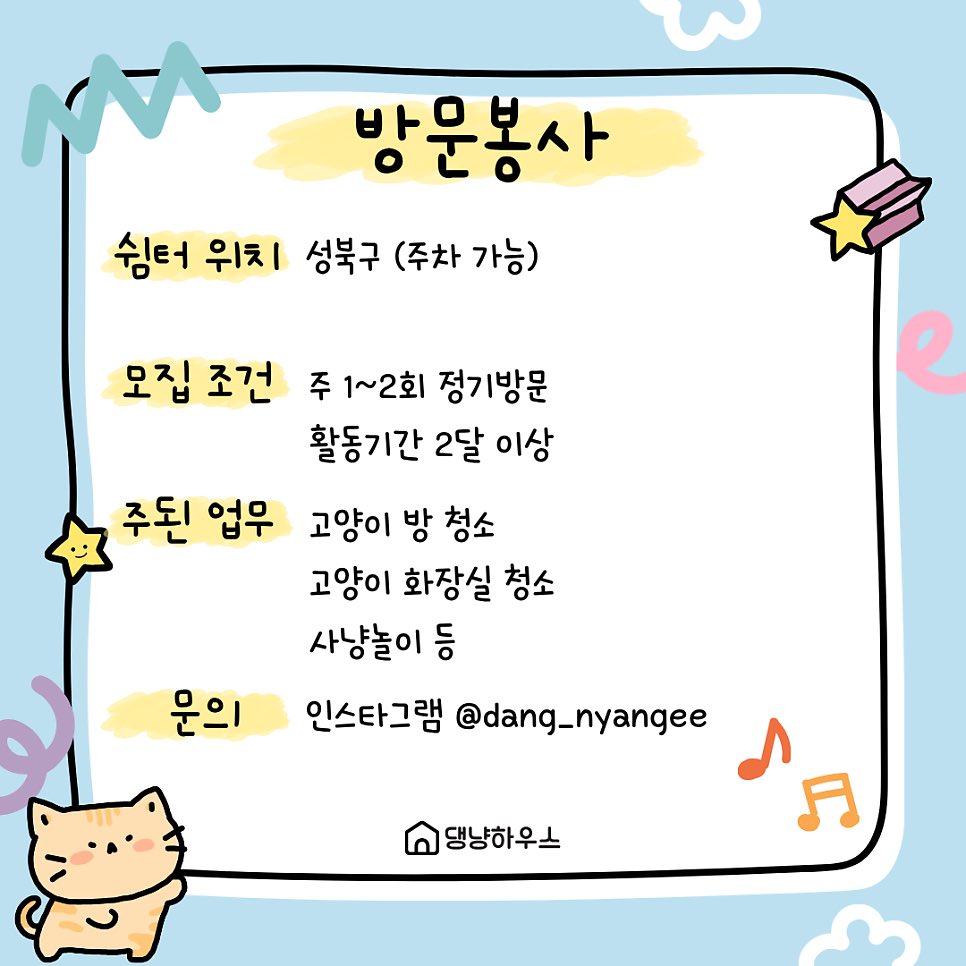 방문봉사
쉼터 위치 성북구 (주차 가능)
모집 조건 주 1~2회 정기방문
활동기간 2달 이상
주된 업무 고양이 방 청소
고양이 화장실 청소
사냥놀이 등
문의 인스타그램 @dang_nyangee
댕냥하우스